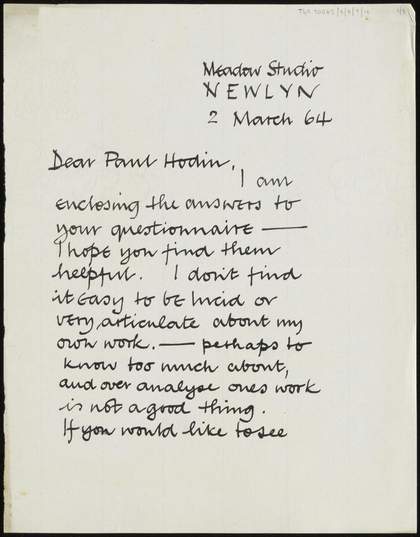 Meadow Studio
NEWLYN
2 March 64
Dear Paul Hodin,
I am
enclosing the answers to
your questionnaire —
I hope you find them
helpful. I don't find
it easy to be lucid or
very articulate about my
own work. — perhaps to
know too much about,
and over analyse ones work
is not a good thing.
If you would like to see